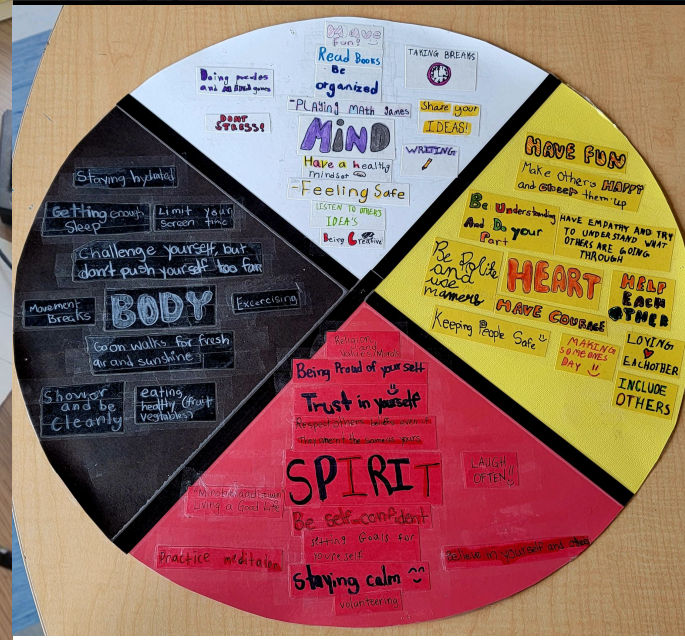 Have
fun!
Read Books
Be
organized
TAKING BREAKS
Doing puzzles
and games
-PLAYING MATH games
Share your
IDEAS!
DONT
STRESS!
MIND
WRITING
Have a healthy
mindset
-Feeling Safe
LISTEN TO OTHERS
IDEA'S
Being Creative
HAVE FUN
Make others HAPPY
and cheer them up
Be Understanding
And Do your
Part
HAVE EMPATHY AND TRY
TO UNDERSTAND WHAT
OTHERS ARE GOING
THROUGH
Be Polite
and
use
manners
HEART
HELP
EACH
OTHER
HAVE COURAGE
Keeping People Safe
MAKING
SOMEONES
DAY
LOVING
EACHOTHER
INCLUDE
OTHERS
Staying hydrated
Getting enough
Sleep
Limit your
Screen time
Challenge yourself, but
don't push yourself too far
Movement
Breaks
BODY
Excercising
Go on walks for fresh
air and sunshine
Shower
and be
Cleanly
eating
healthy (fruit
vegtables)
Religion
and
Being Proud of yourself
Trust in yourself
Respect others beliefs even if
They aren't the same as yours
SPIRIT
LAUGH
OFTEN!!
Living a Good Life
Be self-confident
setting Goals for
Practice
Believe in yourself and others
Staying calm
volunteering